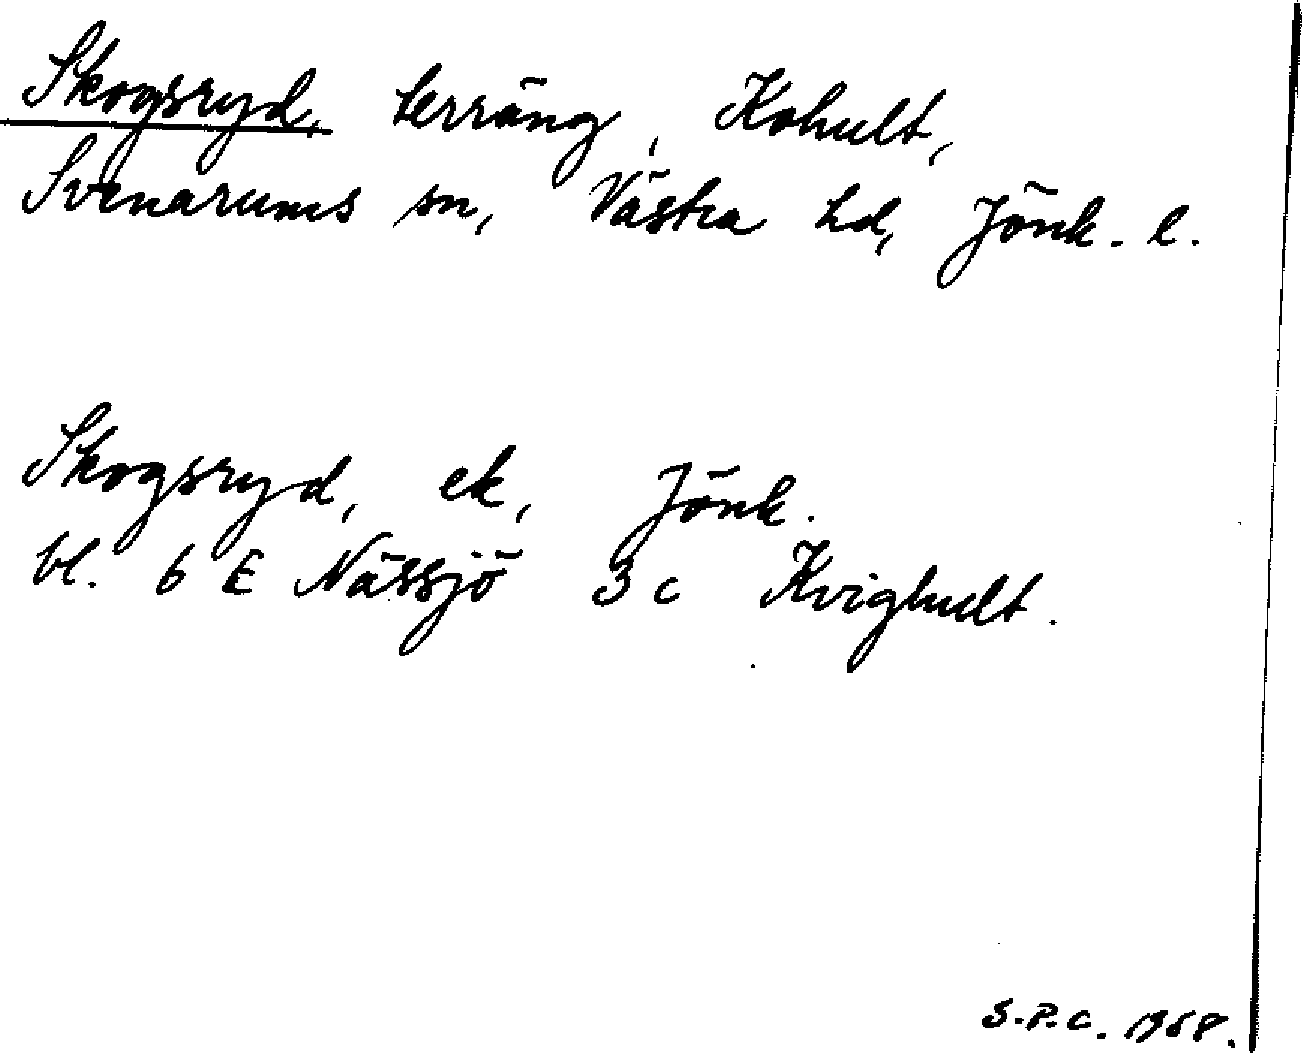 Skogsryd, terräng, Kohult,
Svenarums sn, Västra hd, Jönk. l.
Skogsryd, ek, Jönk.
bl. 6 E Nässjö 3 c Kvighult.
S.P.C. 1968.